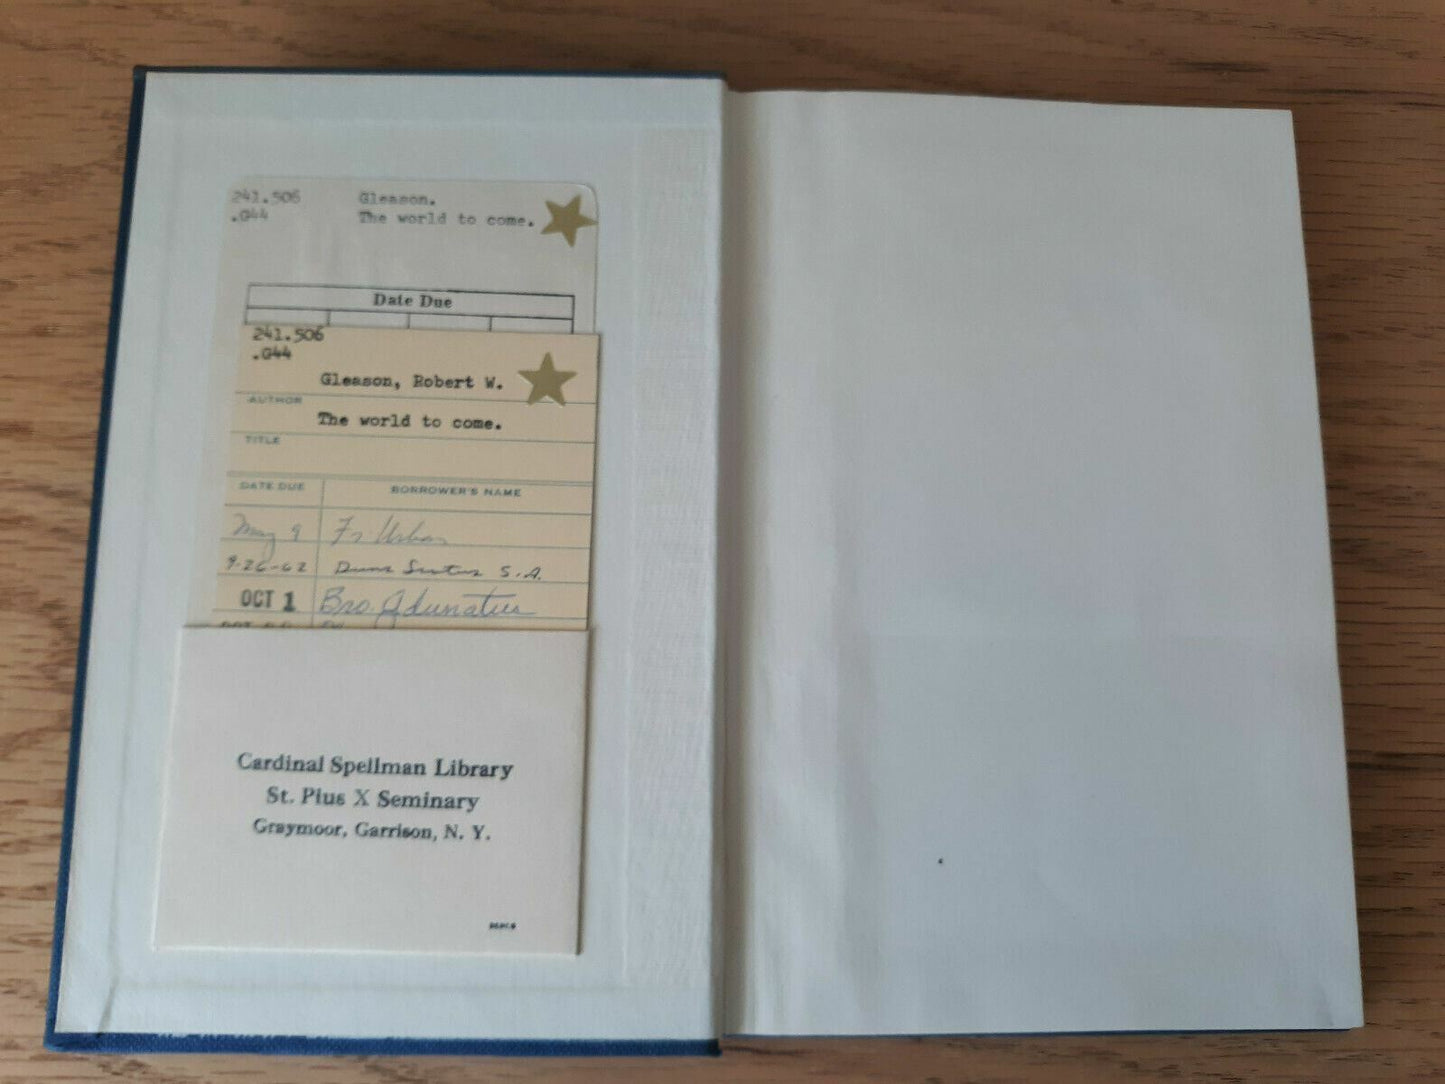 241.506 Gleason.
.G44 The world to come.
Date Due
241.506
.G44
Gleason, Robert W.
AUTHOR
The world to come.
TITLE
DATE DUE BORROWER'S NAME
May 9 Fr Urban
9-26-62 Duns Scotus S.A.
OCT 1 Bro. Adunatus
Cardinal Spellman Library
St. Pius X Seminary
Graymoor, Garrison, N. Y.